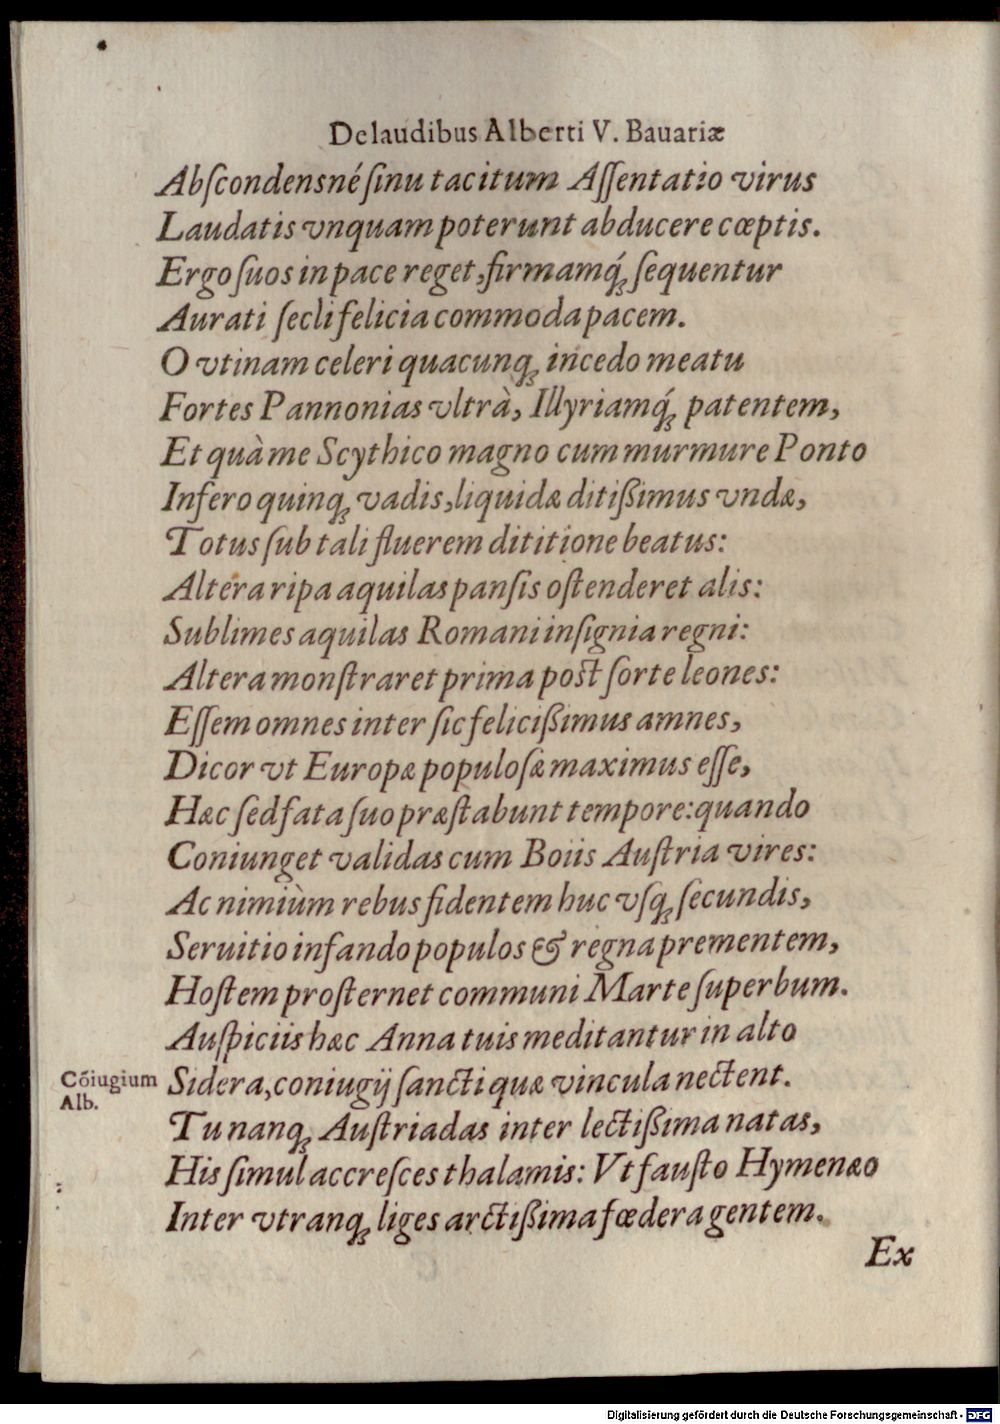 De laudibus Alberti V. Bauariæ
Abſcondensné ſinu tacitum Aſſentatio virus
Laudatis vnquam poterunt abducere cœptis.
Ergo ſuos in pace reget, firmamq́ꝫ ſequentur
Aurati ſecli felicia commoda pacem.
O vtinam celeri quacunqꝫ incedo meatu
Fortes Pannonias vltrà, Illyriamq́ꝫ patentem,
Et quà me Scythico magno cum murmure Ponto
Infero quinqꝫ vadis, liquidæ ditißimus vndæ,
Totus ſub tali fluerem dititione beatus:
Altera ripa aquilas panſis oſtenderet alis:
Sublimes aquilas Romani inſignia regni:
Altera monſtraret prima poſt ſorte leones:
Eſſem omnes inter ſic felicißimus amnes,
Dicor vt Europæ populoſæ maximus eſſe,
Hæc ſed fata ſuo præſtabunt tempore: quando
Coniunget validas cum Boiis Auſtria vires:
Ac nimiùm rebus fidentem huc vſqꝫ ſecundis,
Seruitio infando populos & regna prementem,
Hoſtem proſternet communi Marte ſuperbum.
Auſpiciis hæc Anna tuis meditantur in alto
Cōiugium
Alb.
Sidera, coniugij ſancti quæ vincula nectent.
Tu nanqꝫ Auſtriadas inter lectißima natas,
His ſimul accreſces thalamis: Vt fauſto Hymenæo
Inter vtranqꝫ liges arctißima fœdera gentem.
Ex
Digitalisierung gefördert durch die Deutsche Forschungsgemeinschaft - DFG